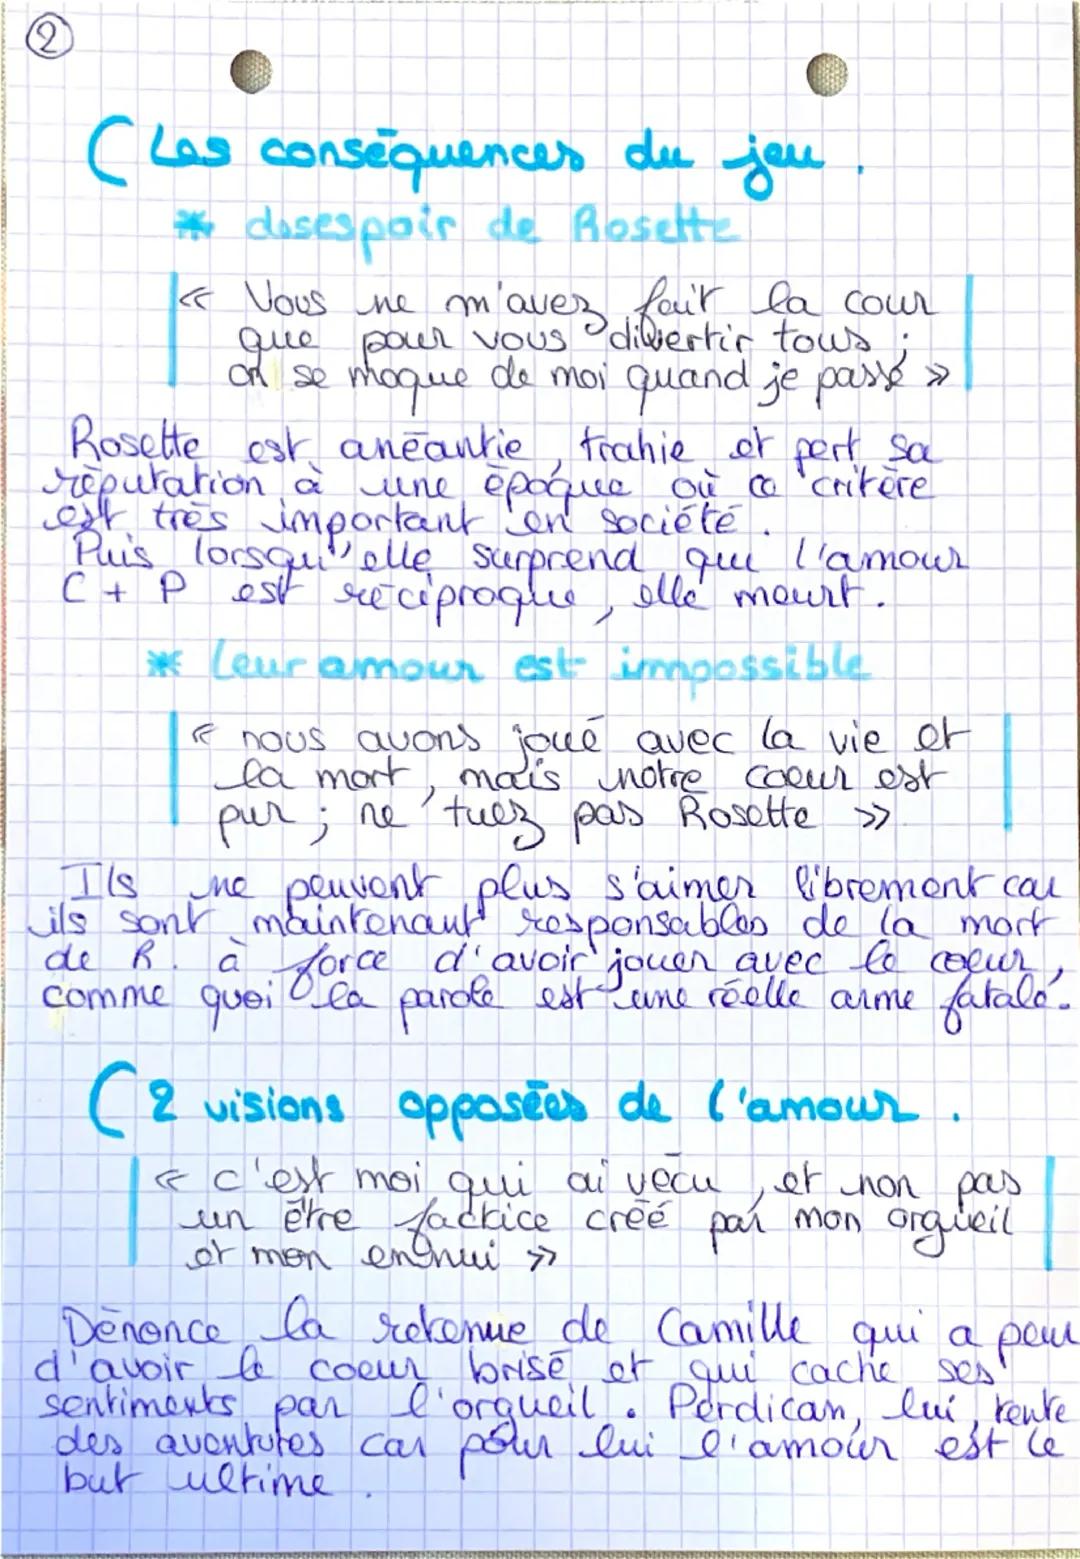 2
( Les conséquences du jeu.
* desespoir de Rosette
« Vous ne m'avez fait la cour
que pour vous divertir tous ;
on se moque de moi quand je passe »
Rosette est anéantie, trahie et pert sa
réputation à une époque où ce critère
est très important en société.
Puis lorsqu'elle surprend que l'amour
C + P est réciproque, elle meurt.
* Leur amour est impossible
« nous avons joué avec la vie et
la mort, mais notre coeur est
pur ; ne tuez pas Rosette »
Ils ne peuvent plus s'aimer librement car
ils sont maintenant responsables de la mort
de R. à force d'avoir jouer avec le coeur,
comme quoi la parole est une réelle arme fatale.
( 2 visions opposées de l'amour.
« c'est moi qui ai vécu, et non pas
un être factice créé par mon orgueil
et mon ennui »
Dénonce la retenue de Camille qui a peur
d'avoir le coeur brisé et qui cache ses
sentiments par l'orgueil. Perdican, lui, tente
des aventures car pour lui l'amour est le
but ultime.